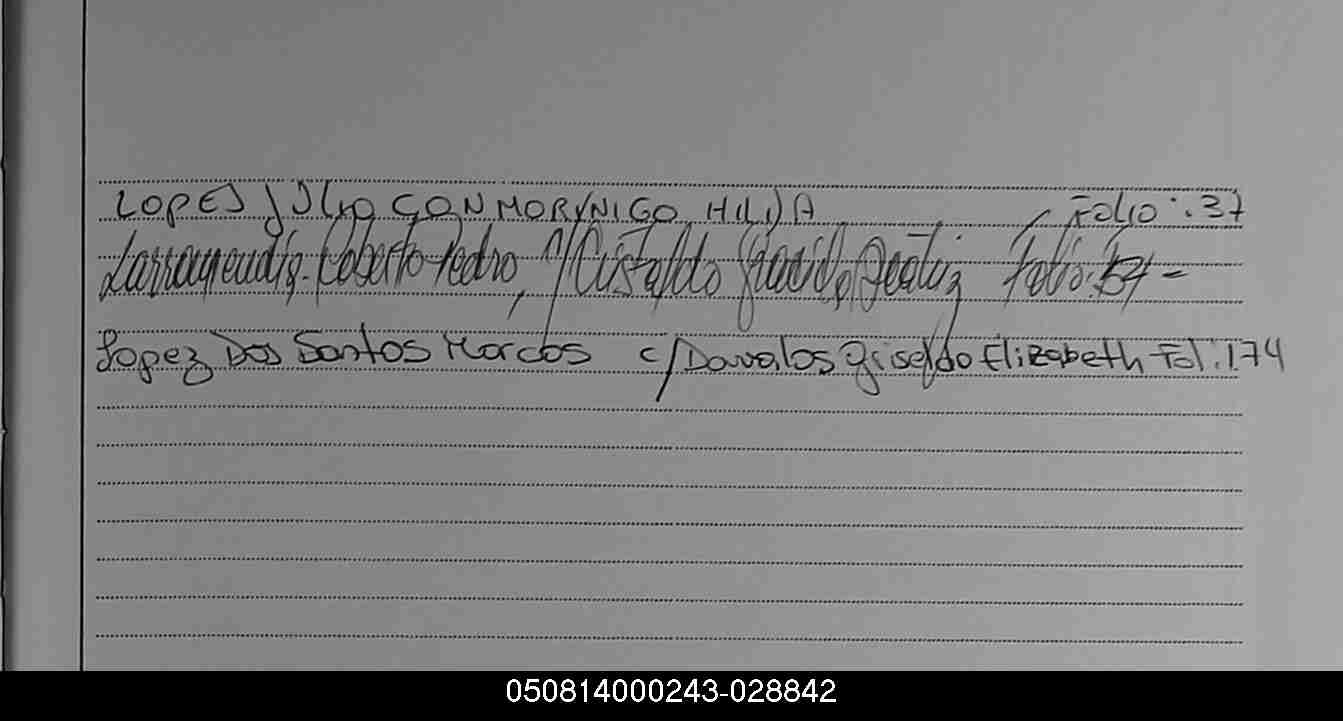 LOPES JULIO CON MORYNIGO HILDA Folio: 37
Larramendia Roberto Pedro, c/ Cristaldo Beatriz Folio: 57-
Lopez Dos Santos Marcos c/ Davalos Giselda Elizabeth Fol: 174
050814000243-028842